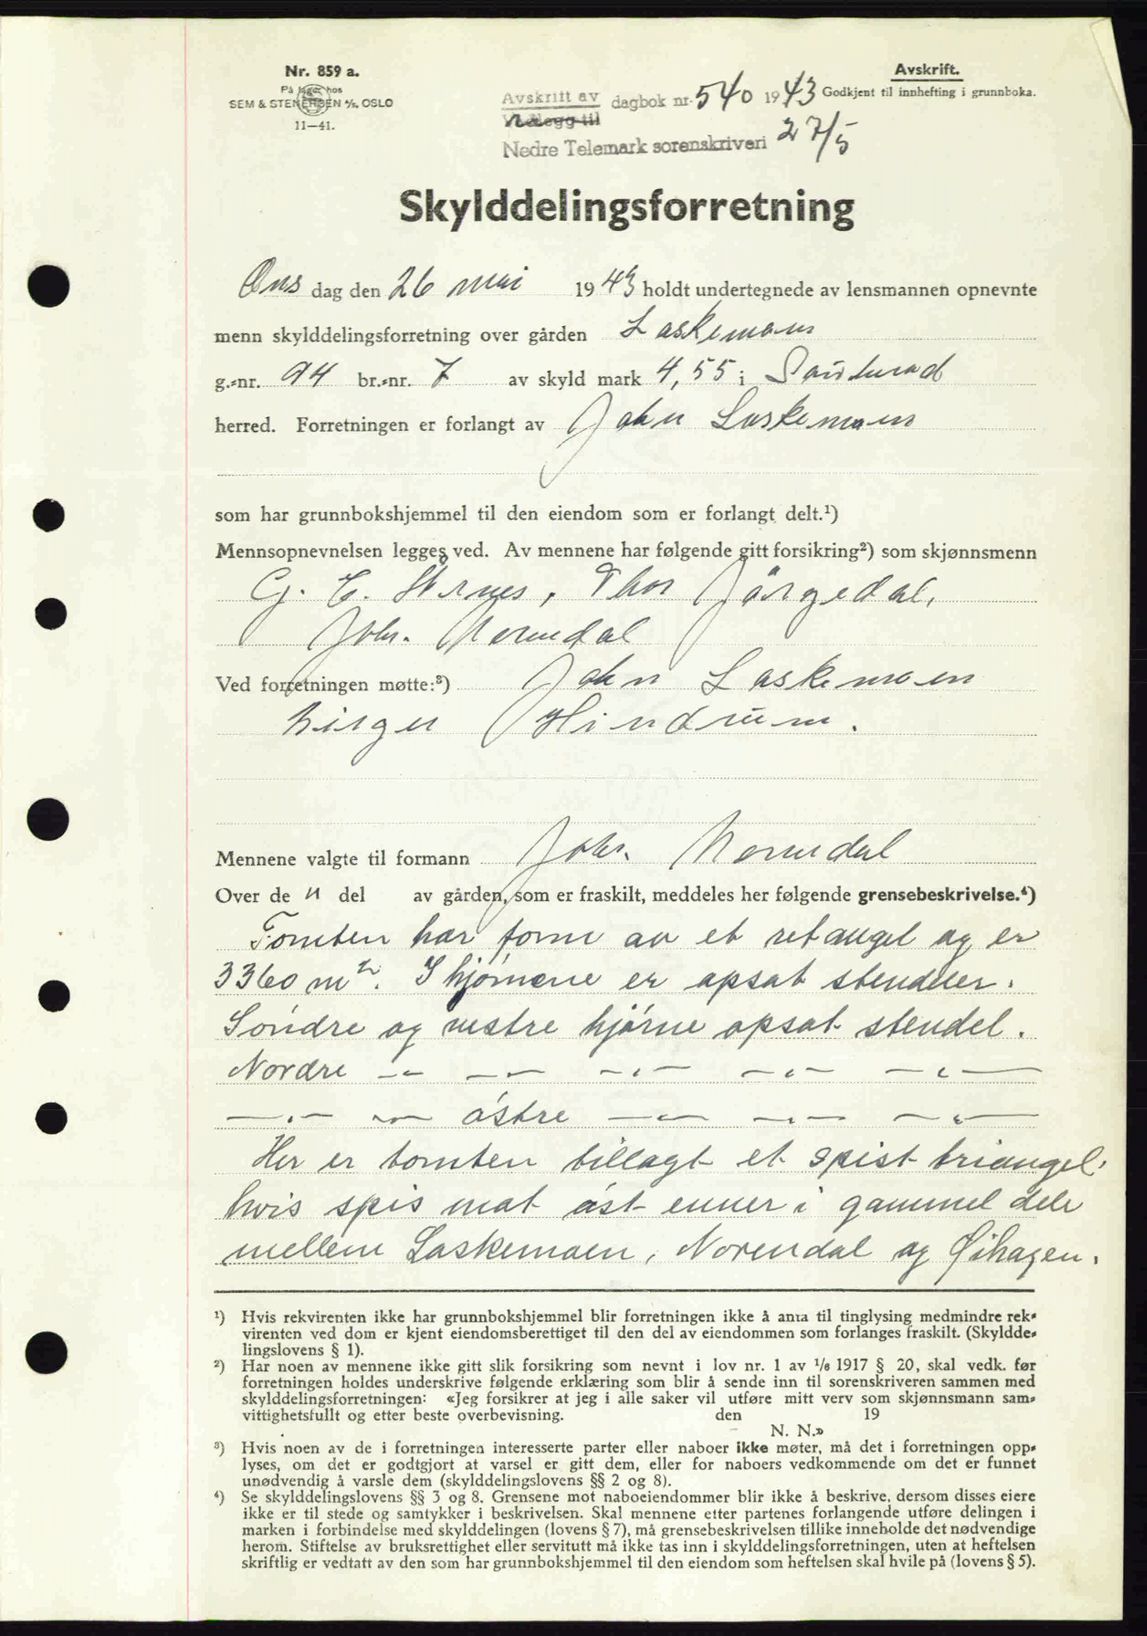 Nr. 859 a.
På lager hos
SEM & STENERSEN A/S. OSLO
11—41.
Avskrift.
Godkjent til innhefting i grunnboka.
Avskrift av dagbok nr. 540 1943
Vedlegg til
Nedre Telemark sorenskriveri 27/5
Skylddelingsforretning
Ons dag den 26 mai 1943 holdt undertegnede av lensmannen opnevnte
menn skylddelingsforretning over gården Laskemoen
g.-nr. 94 br.-nr. 7 av skyld mark 4,55 i Sauherad
herred. Forretningen er forlangt av John Laskemoen
som har grunnbokshjemmel til den eiendom som er forlangt delt.¹)
Mennsopnevnelsen legges ved. Av mennene har følgende gitt forsikring²) som skjønnsmenn
G. H. Thor
Joh. Norendal
Ved forretningen møtte:³) John Laskemoen
Birger Hindrum.
Mennene valgte til formann Joh. Norendal
Over de n del av gården, som er fraskilt, meddeles her følgende grensebeskrivelse.⁴)
Tomten har form av et retangel og er
3360 m². I hjørnene er opsat stendeler.
Søndre og vestre hjørne opsat stendel.
Nordre —"— —"— —"— —"— —"—
—"— —"— østre —"— —"— —"—
Her er tomten tillagt et spist triangel.
hvis spis mot øst enner i gammel dele
mellem Laskemoen, Norendal og Øihagen.
¹) Hvis rekvirenten ikke har grunnbokshjemmel blir forretningen ikke å anta til tinglysing medmindre rek-
virenten ved dom er kjent eiendomsberettiget til den del av eiendommen som forlanges fraskilt. (Skyldde-
lingslovens § 1).
²) Har noen av mennene ikke gitt slik forsikring som nevnt i lov nr. 1 av 1/6 1917 § 20, skal vedk. før
forretningen holdes underskrive følgende erklæring som blir å sende inn til sorenskriveren sammen med
skylddelingsforretningen: «Jeg forsikrer at jeg i alle saker vil utføre mitt verv som skjønnsmann sam-
vittighetsfullt og etter beste overbevisning. den 19
N. N.»
³) Hvis noen av de i forretningen interesserte parter eller naboer ikke møter, må det i forretningen opp-
lyses, om det er godtgjort at varsel er gitt dem, eller for naboers vedkommende om det er funnet
unødvendig å varsle dem (skylddelingslovens §§ 2 og 8).
⁴) Se skylddelingslovens §§ 3 og 8. Grensene mot naboeiendommer blir ikke å beskrive, dersom disses eiere
ikke er til stede og samtykker i beskrivelsen. Skal mennene etter partenes forlangende utføre delingen i
marken i forbindelse med skylddelingen (lovens § 7), må grensebeskrivelsen tillike inneholde det nødvendige
herom. Stiftelse av bruksrettighet eller servitutt må ikke tas inn i skylddelingsforretningen, uten at heftelsen
skriftlig er vedtatt av den som har grunnbokshjemmel til den eiendom som heftelsen skal hvile på (lovens § 5).